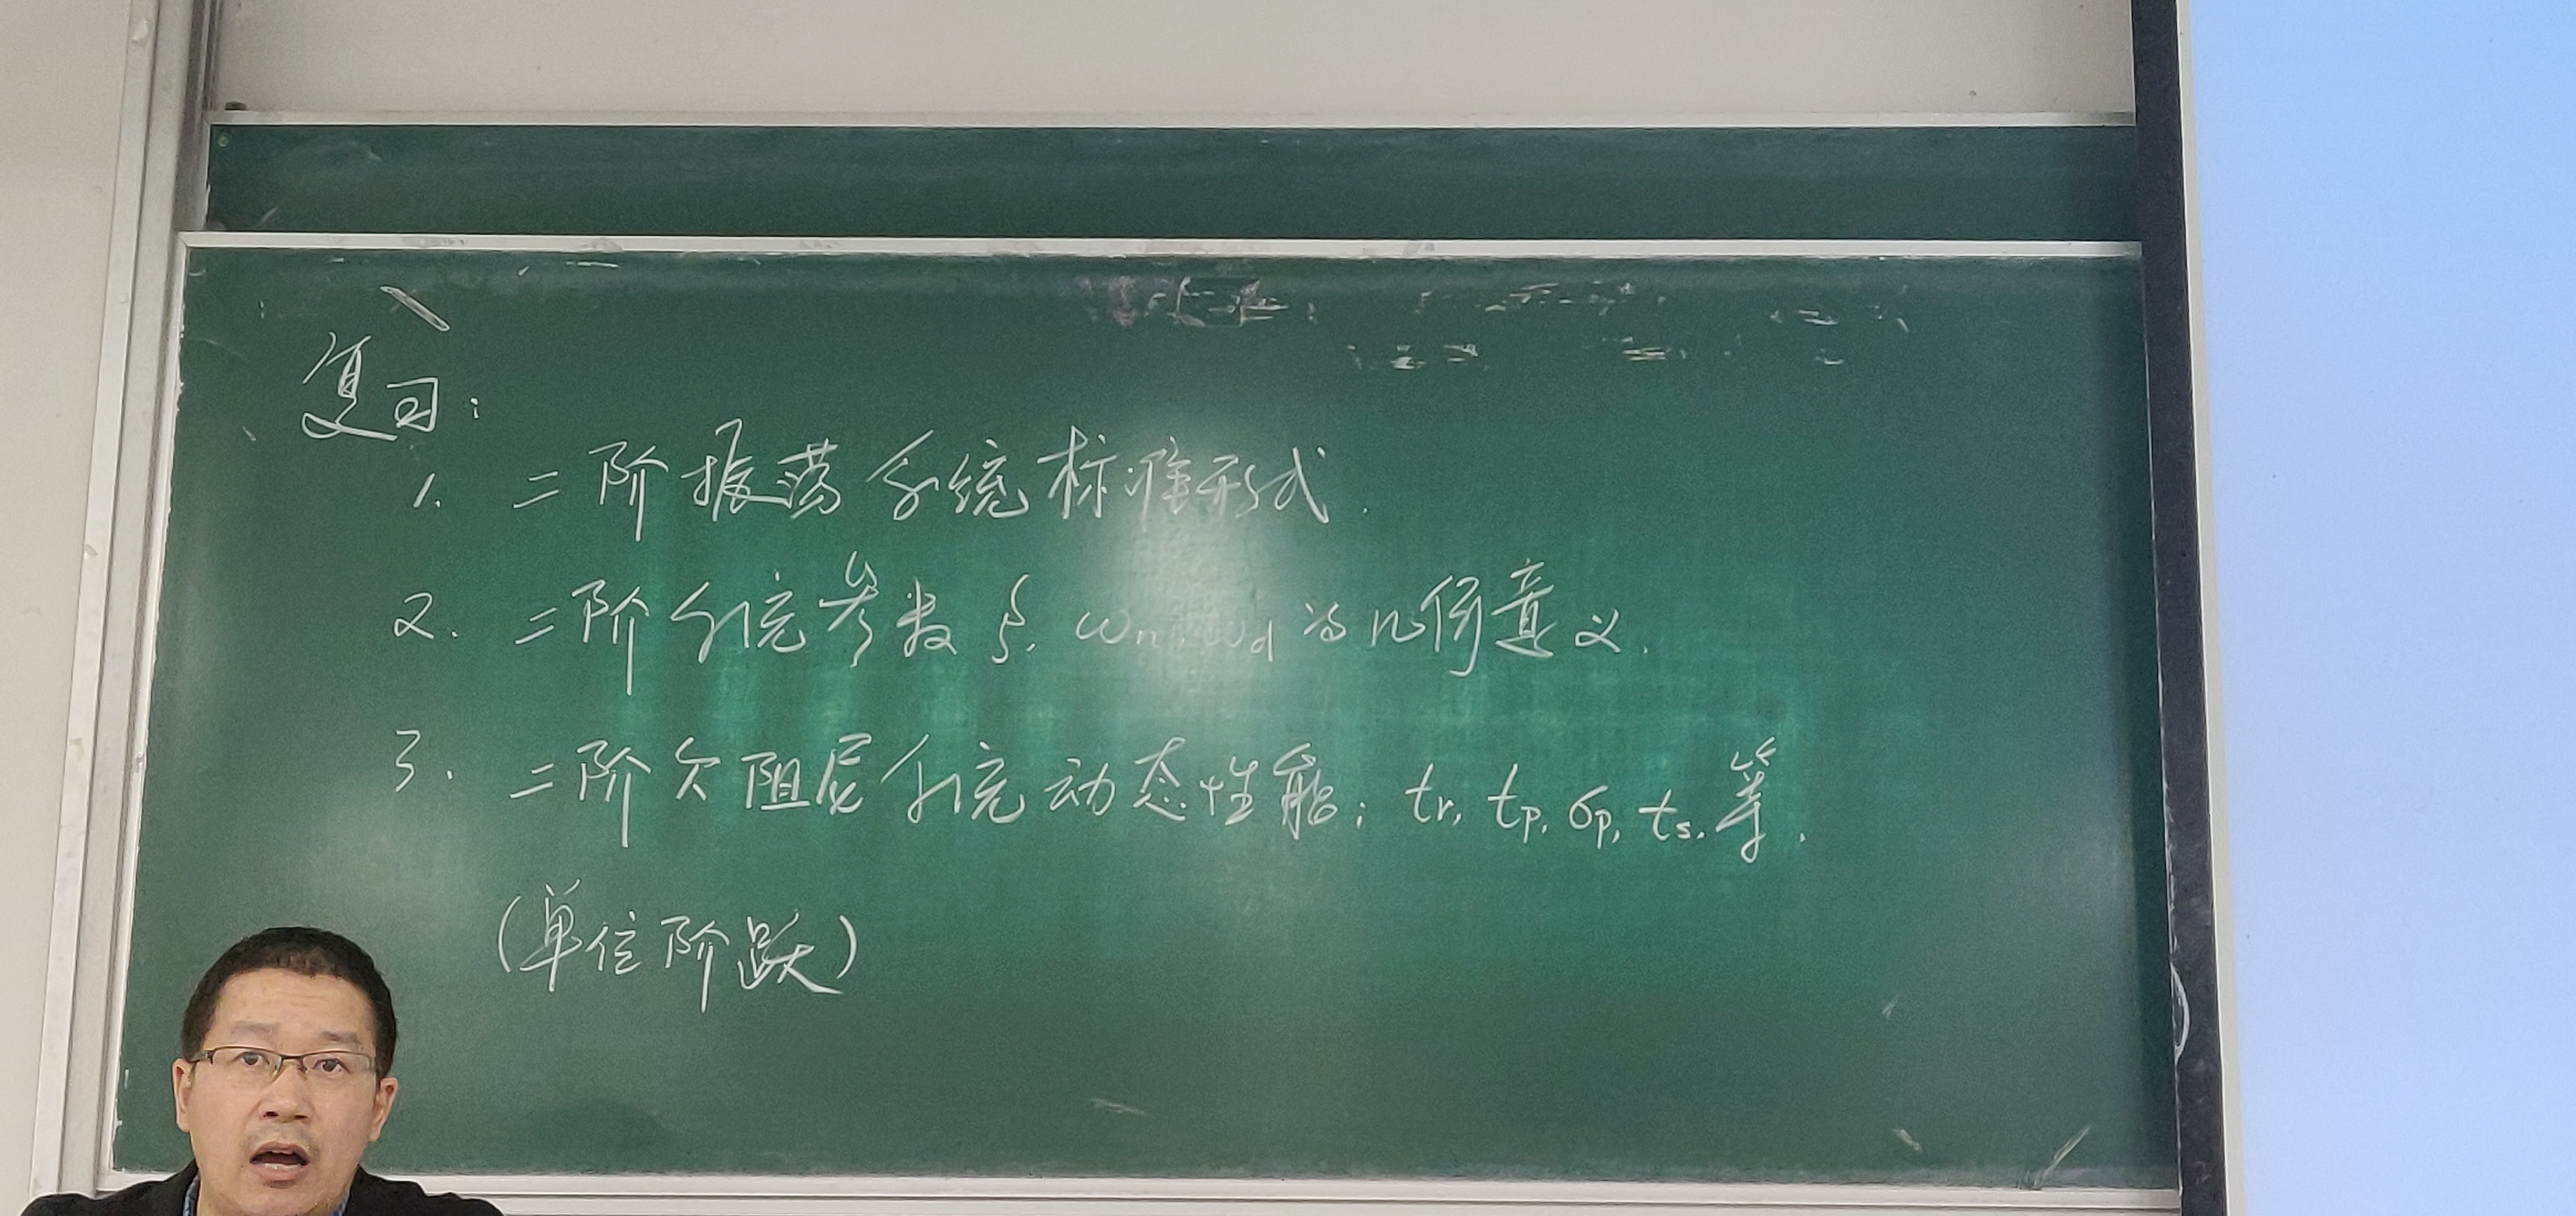 复习：
1. 二阶振荡系统标准形式.
2. 二阶系统参数ξ, ωn, ωd 的几何意义.
3. 二阶欠阻尼系统动态性能：tr, tp, σp, ts, 等.
(单位阶跃)